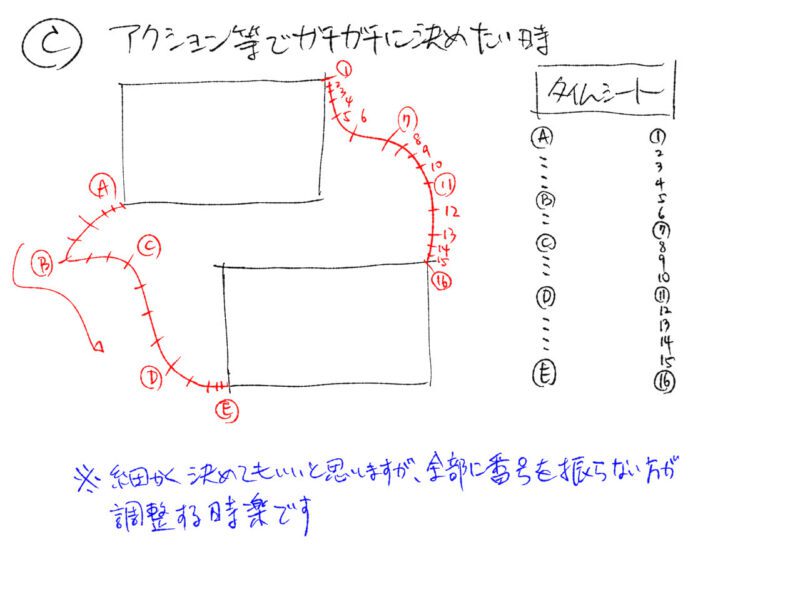 Ⓒ アクション等でガチガチに決めたい時
① 
2
3
4
5
6
⑦
8
9
10
⑪
12
13
14
15
⑯
Ⓐ
Ⓑ
Ⓒ
Ⓓ
Ⓔ
タイムシート
Ⓐ ①
2
3
4
Ⓑ 5
6
⑦
Ⓒ 8
9
10
Ⓓ ⑪
12
13
14
15
Ⓔ ⑯
※ 細かく決めてもいいと思いますが、全部に番号を振らない方が
調整する時楽です